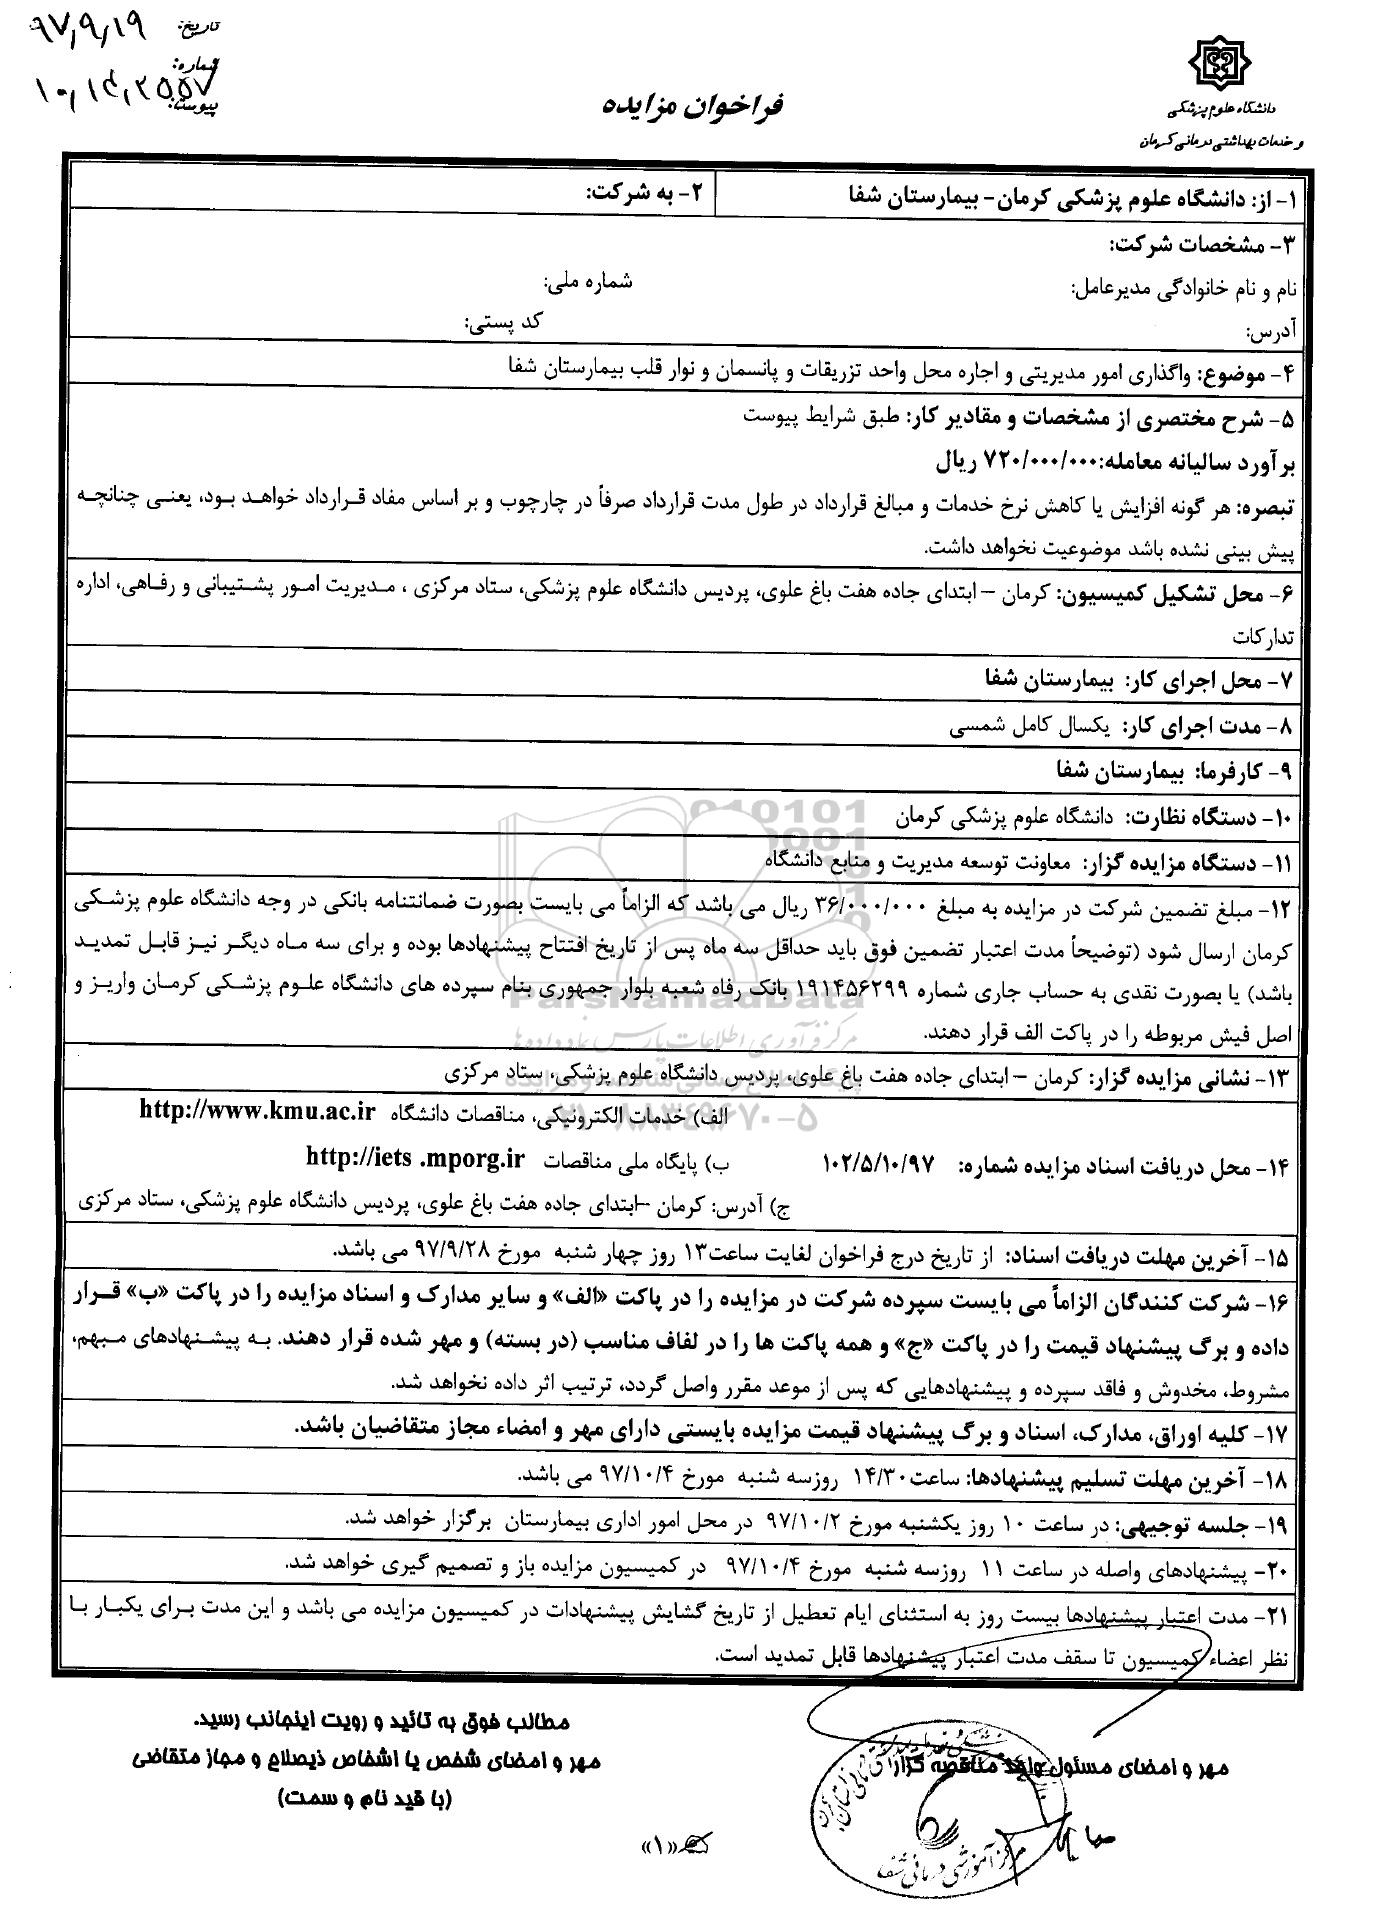 تاریخ: ۹۷,۹,۱۹
شماره:
۱۰,۱۴,۲۵۵۷
پیوست:
دانشگاه علوم پزشکی
و خدمات بهداشتی درمانی کرمان
فراخوان مزایده
۱- از: دانشگاه علوم پزشکی کرمان- بیمارستان شفا
۲- به شرکت:
۳- مشخصات شرکت:
نام و نام خانوادگی مدیرعامل: شماره ملی:
آدرس: کد پستی:
۴- موضوع: واگذاری امور مدیریتی و اجاره محل واحد تزریقات و پانسمان و نوار قلب بیمارستان شفا
۵- شرح مختصری از مشخصات و مقادیر کار: طبق شرایط پیوست
برآورد سالیانه معامله:۷۲۰/۰۰۰/۰۰۰ ریال
تبصره: هر گونه افزایش یا کاهش نرخ خدمات و مبالغ قرارداد در طول مدت قرارداد صرفاً در چارچوب و بر اساس مفاد قرارداد خواهد بود، یعنی چنانچه
پیش بینی نشده باشد موضوعیت نخواهد داشت.
۶- محل تشکیل کمیسیون: کرمان – ابتدای جاده هفت باغ علوی، پردیس دانشگاه علوم پزشکی، ستاد مرکزی ، مدیریت امور پشتیبانی و رفاهی، اداره
تدارکات
۷- محل اجرای کار: بیمارستان شفا
۸- مدت اجرای کار: یکسال کامل شمسی
۹- کارفرما: بیمارستان شفا
۱۰- دستگاه نظارت: دانشگاه علوم پزشکی کرمان
۱۱- دستگاه مزایده گزار: معاونت توسعه مدیریت و منابع دانشگاه
۱۲- مبلغ تضمین شرکت در مزایده به مبلغ ۳۶/۰۰۰/۰۰۰ ریال می باشد که الزاماً می بایست بصورت ضمانتنامه بانکی در وجه دانشگاه علوم پزشکی
کرمان ارسال شود (توضیحاً مدت اعتبار تضمین فوق باید حداقل سه ماه پس از تاریخ افتتاح پیشنهادها بوده و برای سه ماه دیگر نیز قابل تمدید
باشد) یا بصورت نقدی به حساب جاری شماره ۱۹۱۴۵۶۲۹۹ بانک رفاه شعبه بلوار جمهوری بنام سپرده های دانشگاه علوم پزشکی کرمان واریز و
اصل فیش مربوطه را در پاکت الف قرار دهند.
ParsNamadData
مرکز فرآوری اطلاعات پارس نماد داده ها
۱۳- نشانی مزایده گزار: کرمان – ابتدای جاده هفت باغ علوی، پردیس دانشگاه علوم پزشکی، ستاد مرکزی
۰۲۱-۸۸۳۴۹۶۷۰-۵
الف) خدمات الکترونیکی، مناقصات دانشگاه http://www.kmu.ac.ir
۱۴- محل دریافت اسناد مزایده شماره: ۱۰۲/۵/۱۰/۹۷ ب) پایگاه ملی مناقصات http://iets .mporg.ir
ج) آدرس: کرمان –ابتدای جاده هفت باغ علوی، پردیس دانشگاه علوم پزشکی، ستاد مرکزی
۱۵- آخرین مهلت دریافت اسناد: از تاریخ درج فراخوان لغایت ساعت۱۳ روز چهار شنبه مورخ ۹۷/۹/۲۸ می باشد.
۱۶- شرکت کنندگان الزاماً می بایست سپرده شرکت در مزایده را در پاکت «الف» و سایر مدارک و اسناد مزایده را در پاکت «ب» قرار
داده و برگ پیشنهاد قیمت را در پاکت «ج» و همه پاکت ها را در لفاف مناسب (در بسته) و مهر شده قرار دهند. به پیشنهادهای مبهم،
مشروط، مخدوش و فاقد سپرده و پیشنهادهایی که پس از موعد مقرر واصل گردد، ترتیب اثر داده نخواهد شد.
۱۷- کلیه اوراق، مدارک، اسناد و برگ پیشنهاد قیمت مزایده بایستی دارای مهر و امضاء مجاز متقاضیان باشد.
۱۸- آخرین مهلت تسلیم پیشنهادها: ساعت۱۴/۳۰ روزسه شنبه مورخ ۹۷/۱۰/۴ می باشد.
۱۹- جلسه توجیهی: در ساعت ۱۰ روز یکشنبه مورخ ۹۷/۱۰/۲ در محل امور اداری بیمارستان برگزار خواهد شد.
۲۰- پیشنهادهای واصله در ساعت ۱۱ روزسه شنبه مورخ ۹۷/۱۰/۴ در کمیسیون مزایده باز و تصمیم گیری خواهد شد.
۲۱- مدت اعتبار پیشنهادها بیست روز به استثنای ایام تعطیل از تاریخ گشایش پیشنهادات در کمیسیون مزایده می باشد و این مدت برای یکبار با
نظر اعضاء کمیسیون تا سقف مدت اعتبار پیشنهادها قابل تمدید است.
مهر و امضای مسئول واحد مناقصه گزار
مرکز آموزشی درمانی شفا
مطالب فوق به تائید و رویت اینجانب رسید.
مهر و امضای شخص یا اشخاص ذیصلاح و مجاز متقاضی
(با قید نام و سمت)
«۱»